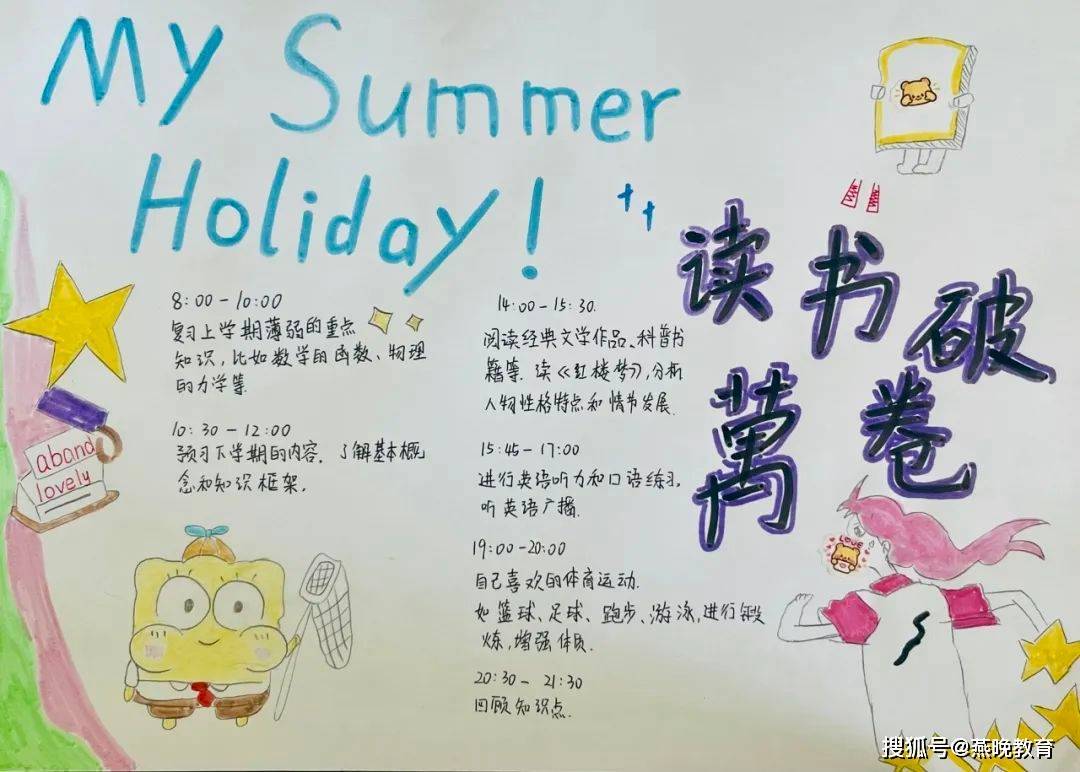 My Summer
Holiday!
8:00-10:00
复习上学期薄弱的重点
知识，比如数学的函数、物理
的力学等.
10:30-12:00
预习下学期的内容，了解基本概
念和知识框架.
14:00-15:30
阅读经典文学作品、科普书
籍等.读《红楼梦》，分析
人物性格特点和情节发展.
15:45-17:00
进行英语听力和口语练习，
听英语广播.
19:00-20:00
自己喜欢的体育运动.
如篮球、足球、跑步、游泳，进行锻
炼，增强体质.
20:30-21:30
回顾知识点.
读书破
萬卷
aband
lovely
LOVE
搜狐号@燕晚教育